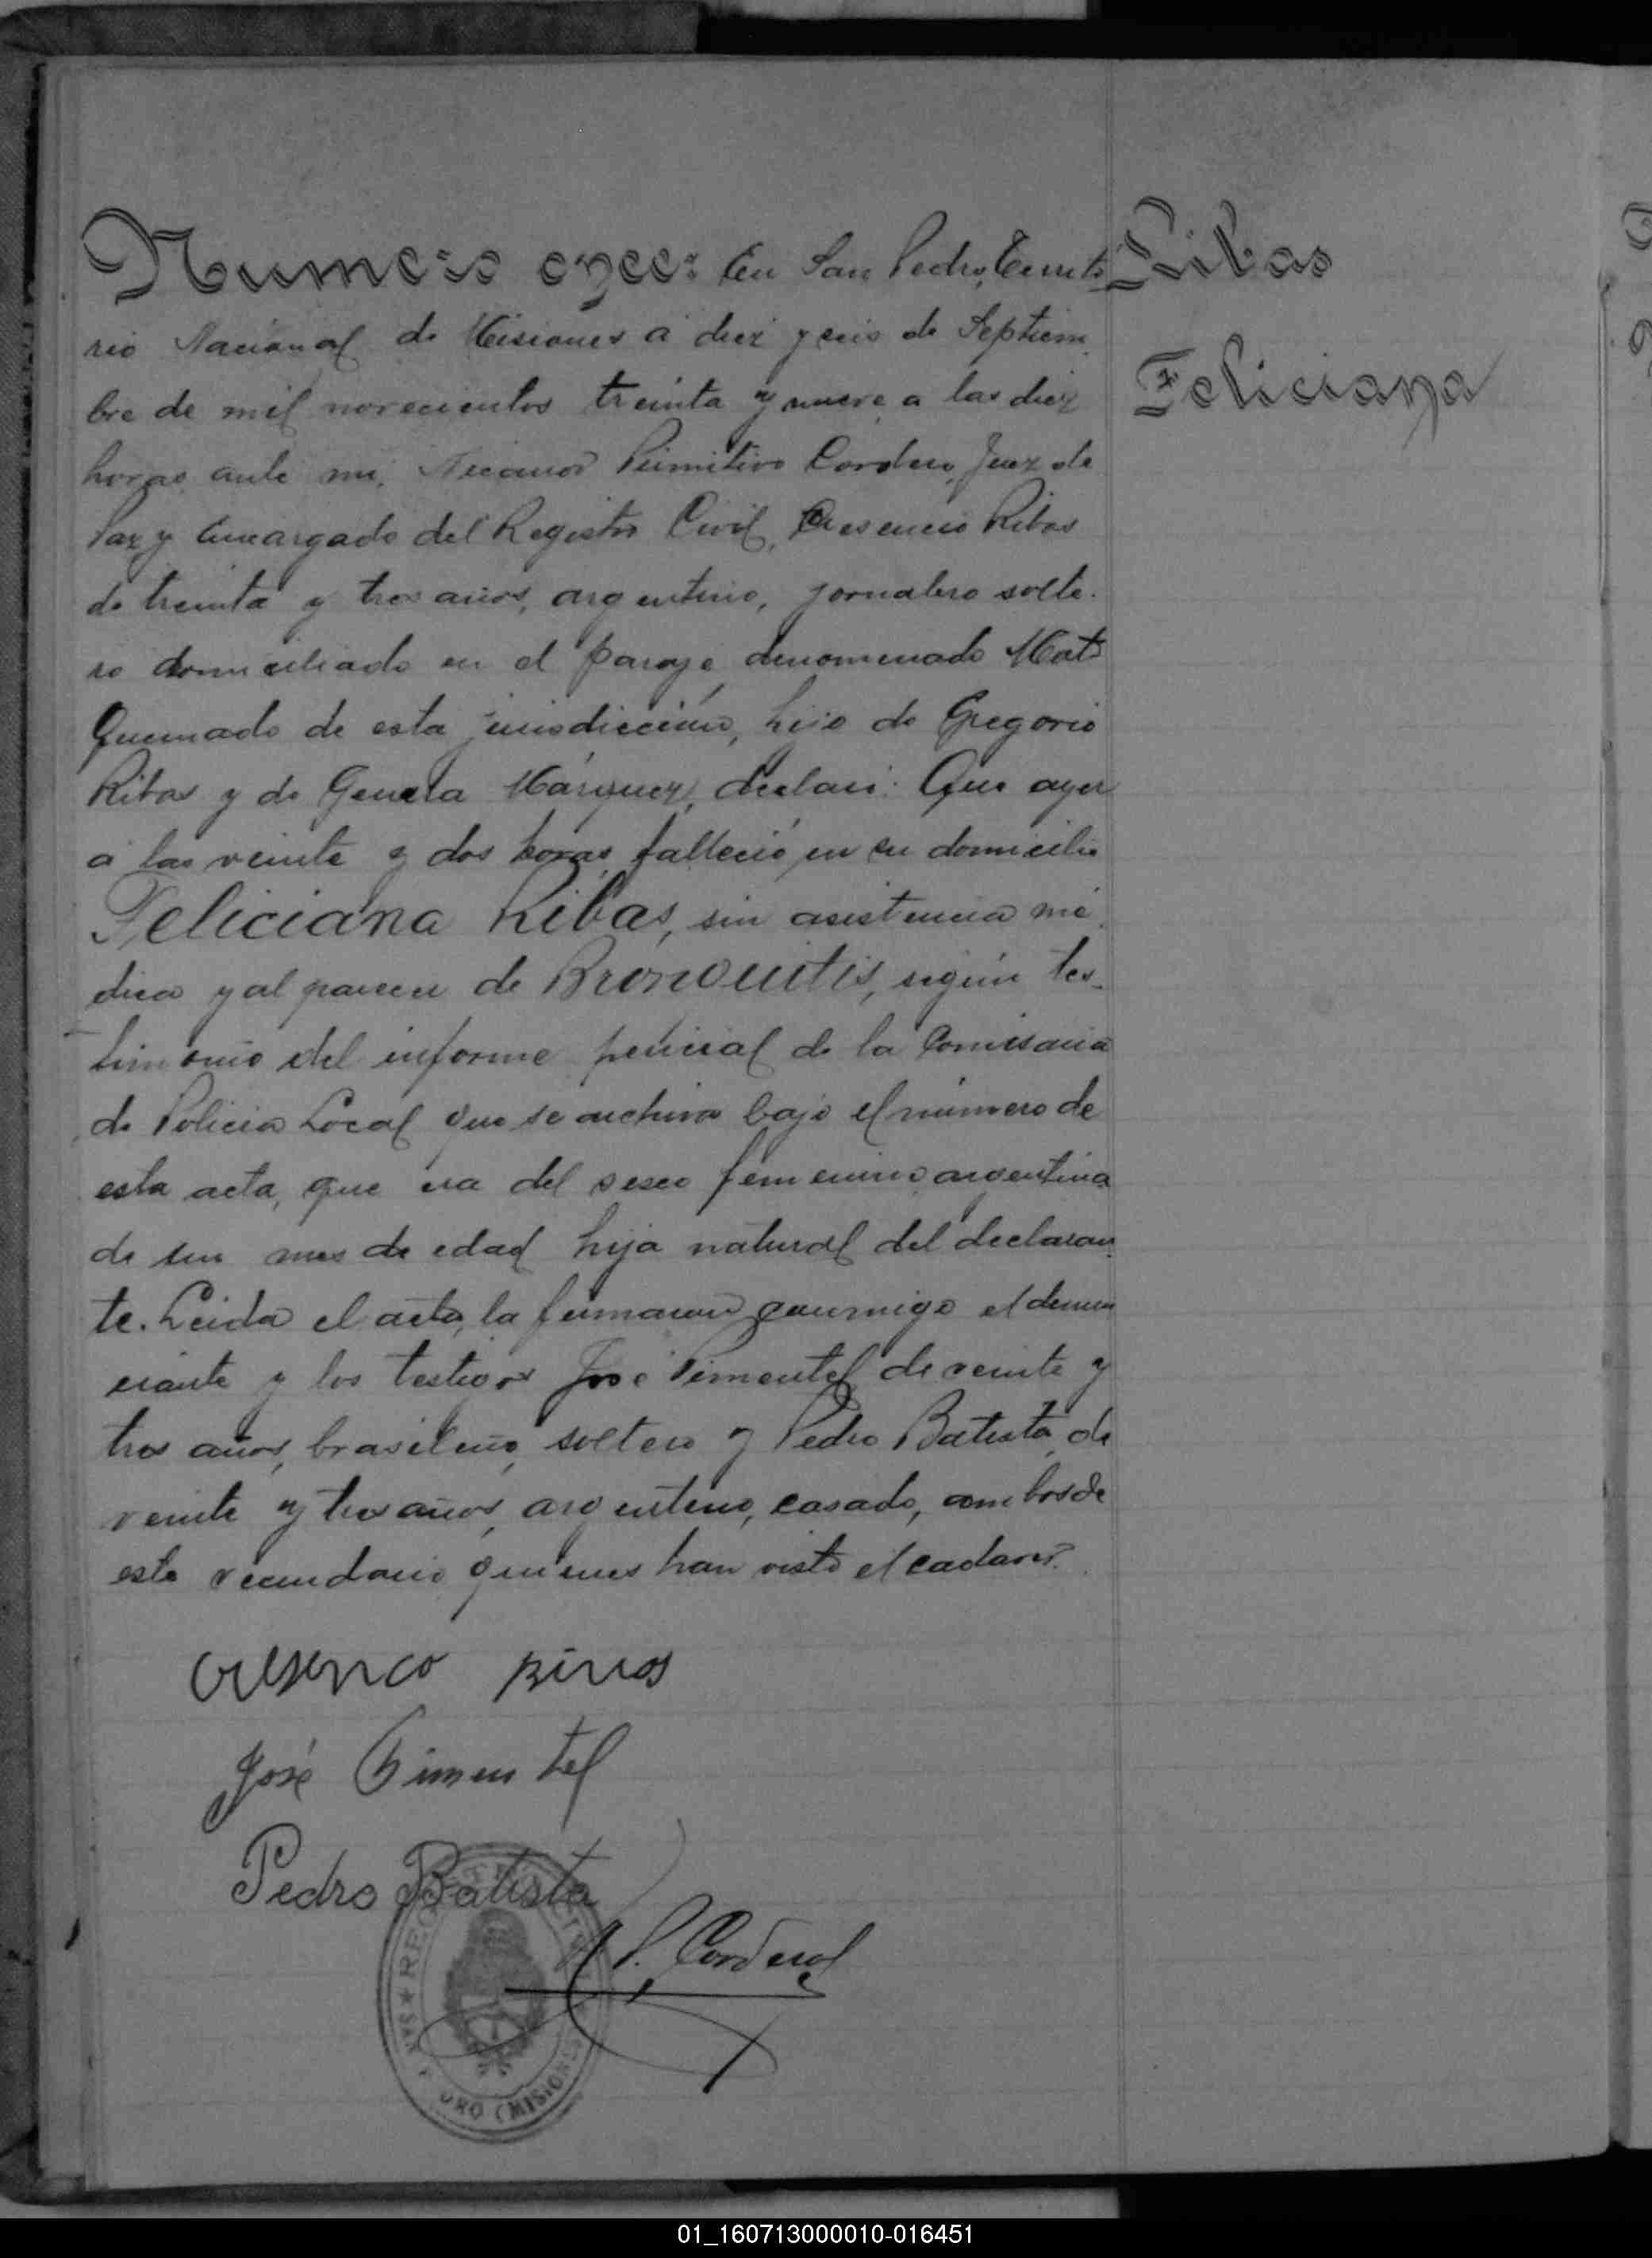 Numero once: En San Pedro, Territo
Ribas
rio Nacional de Misiones a diez y seis de Septiem
Feliciana
bre de mil novecientos treinta y nueve a las diez
horas ante mi, Nicanor Primitivo Cordero, Juez de
Paz y Encargado del Registro Civil, Cresencio Ribas
de treinta y tres años, argentino, jornalero solte-
ro domiciliado en el paraje denominado Mato
Quemado de esta jurisdicción, hijo de Gregorio
Ribas y de Márquez, declaró: Que ayer
a las veinte y dos horas falleció en su domicilio
Feliciana Ribas, sin asistencia mé
dica y al parecer de Bronquitis, según tes-
timonio del informe pericial de la Comisaria
de Policia Local que se archiva bajo el número de
esta acta, que era del sexo femenino argentina
de un mes de edad hija natural del declaran
te. Leida el acta, la firmaron conmigo el denun
ciante y los testigos José Pimentel de veinte y
tres años, brasileño, soltero y Pedro Batista, de
veinte y tres años, argentino, casado, ambos de
este vecindario quienes han visto el cadaver.
cresenco rivas
José Pimentel
Pedro Batista
N. P. Cordero
REGISTRO CIVIL
SAN PEDRO (MISIONES)
01_160713000010-016451